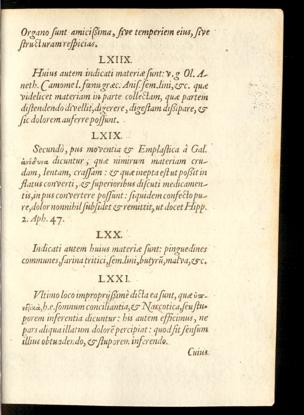 Organo sunt amicissima, sive temperiem eius, sive
structuram respicias.
LXIIX.
Huius autem indicati materiæ sunt: v. g Ol. A-
neth. Camomel. fœnugræc. Anis. sem. lini, &c. quæ
videlicet materiam in parte collectam, quæ partem
distendendo divellit, digerere, digestam dissipare, &
sic dolorem auferre possunt.
LXIX.
Secundò, pus moventia & Emplastica à Gal.
dicuntur, quæ nimirum materiam cru-
dam, lentam, crassam: & quæ inepta est ut possit in
flatus converti, & superioribus discuti medicamen-
tis, in pus convertere possunt: siquidem confecto pu-
re, dolor nonnihil subsidet & remittit, ut docet Hipp.
2. Aph. 47.
LXX.
Indicati autem huius materiæ sunt: pinguedines
communes, farina tritici, sem. lini, butyrũ, malva, &c.
LXXI.
Vltimo loco impropriissimè dicta ea sunt, quæ
h.e. somnum conciliantia, & Narcotica, seu stu-
porem inferentia dicuntur: his autem efficimus, ne
pars aliqua illarum dolorẽ percipiat: quod sit sensum
illius obtundendo, & stuporem inferendo.
Cuius